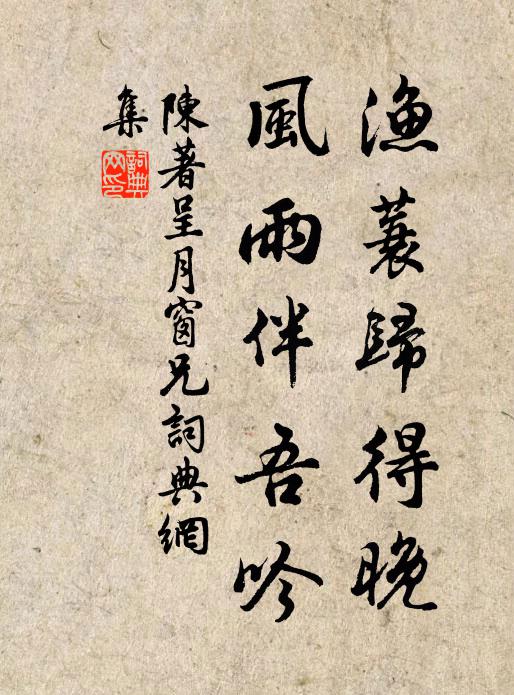 漁蓑歸得晚
風雨伴吾吟
陳著呈月窗兄詞典網
集
詞典
网印